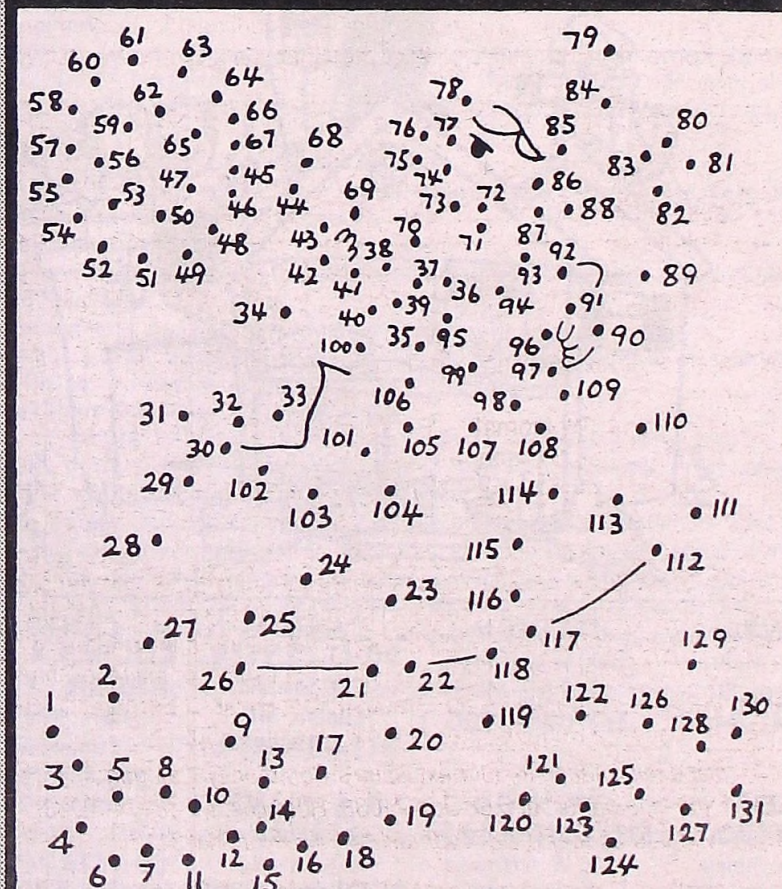 61 63 79
60 64 78 84
58 62 66 80
59 76 77 85
57 56 65 67 68 75 83 81
55 53 47 45 74 86
54 50 46 44 69 73 72 88 82
52 51 49 48 43 38 70 71 87 92
42 41 37 36 93 89
34 40 39 94 91
100 35 95 96 90
99 97 109
31 32 33 106 98
30 101 105 107 108 110
29 102 103 104 114 113 111
28 115 112
24 23 116
27 25 117 129
2 26 21 22 118
1 9 20 119 122 126 128 130
3 5 8 13 17 121 125
10 14 19 120 123 127 131
4 12 16 18 124
6 7 11 15